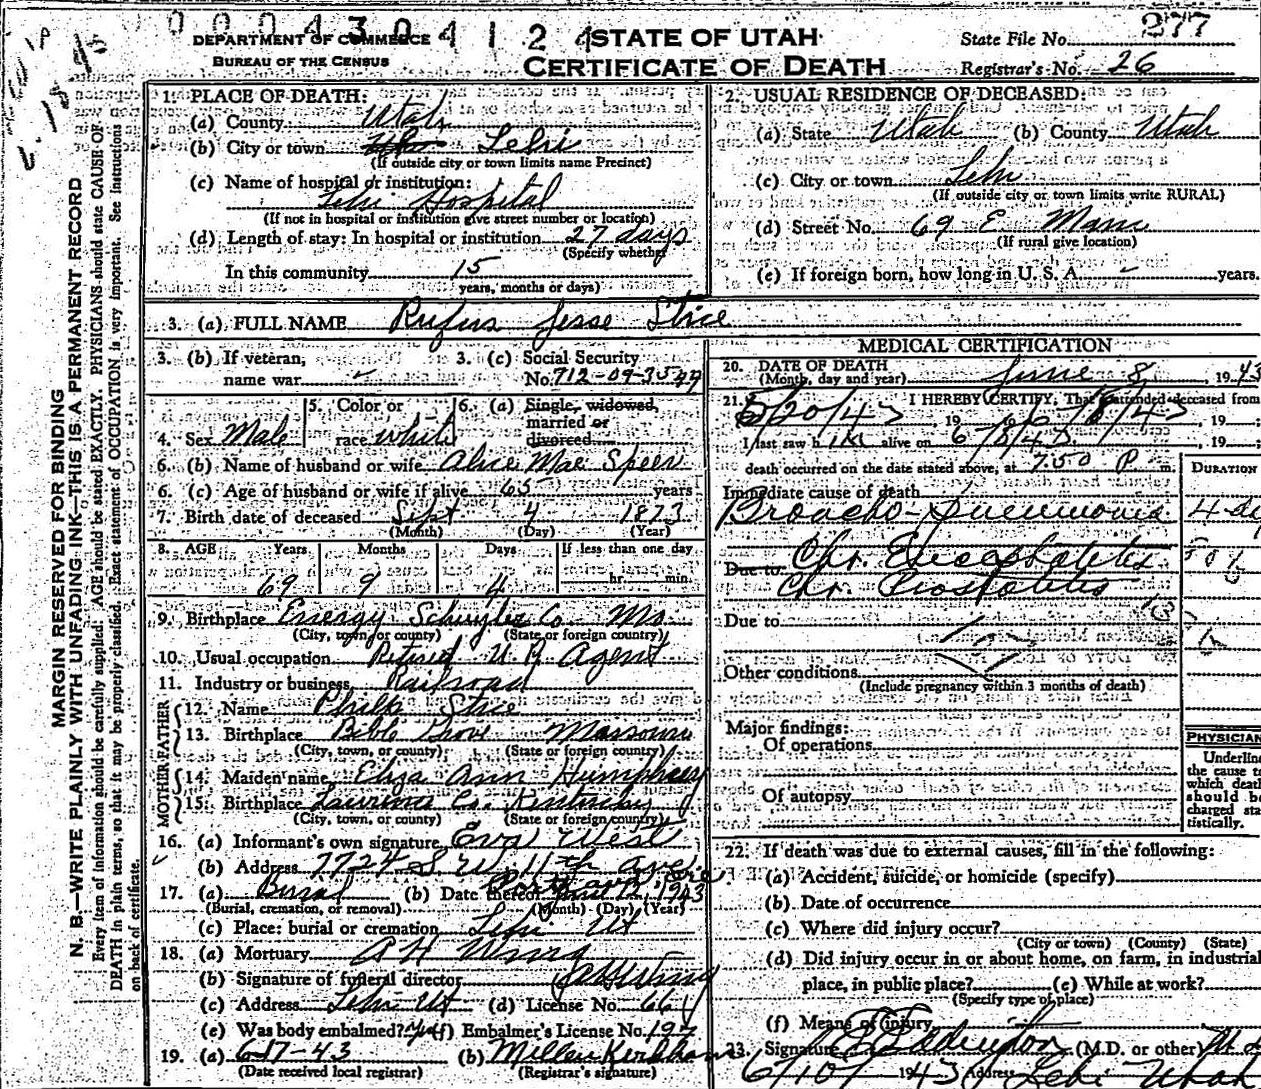 0004304124
DEPARTMENT OF COMMERCE
BUREAU OF THE CENSUS
STATE OF UTAH
CERTIFICATE OF DEATH
State File No. 277
Registrar's No. 26
MARGIN RESERVED FOR BINDING
N. B.—WRITE PLAINLY WITH UNFADING INK—THIS IS A PERMANENT RECORD
Every item of information should be carefully supplied. AGE should be stated EXACTLY. PHYSICIANS should state CAUSE OF
DEATH in plain terms, so that it may be properly classified. Exact statement of OCCUPATION is very important. See instructions
on back of certificate.
1. PLACE OF DEATH:
(a) County Utah
(b) City or town Lehi
(If outside city or town limits name Precinct)
(c) Name of hospital or institution:
Lehi Hospital
(If not in hospital or institution give street number or location)
(d) Length of stay: In hospital or institution 27 days
(Specify whether
In this community 15
years, months or days)
2. USUAL RESIDENCE OF DECEASED:
(a) State Utah (b) County Utah
(c) City or town Lehi
(If outside city or town limits write RURAL)
(d) Street No. 69 E Main
(If rural give location)
(e) If foreign born, how long in U. S. A. years.
3. (a) FULL NAME Rufus Jesse Stice
3. (b) If veteran, name war
3. (c) Social Security No. 712-09-3549
4. Sex Male
5. Color or race white
6. (a) Single, widowed, married or divorced
6. (b) Name of husband or wife Alice Mae Speer
6. (c) Age of husband or wife if alive 65 years
7. Birth date of deceased Sept 4 1873
(Month) (Day) (Year)
8. AGE Years Months Days If less than one day
69 9 4 hr. min.
9. Birthplace Energy Schuyler Co Mo.
(City, town, or county) (State or foreign country)
10. Usual occupation Retired U.P. Agent
11. Industry or business Railroad
FATHER
12. Name Stice
13. Birthplace Bible Grove Missouri
(City, town, or county) (State or foreign country)
MOTHER
14. Maiden name Eliza Ann Humphrey
15. Birthplace Lawrence Co. Kentucky
(City, town, or county) (State or foreign country)
16. (a) Informant's own signature Eva West
(b) Address 7724 S. W. 11th Ave
17. (a) Burial (b) Date thereof 12 1943
(Burial, cremation, or removal) (Month) (Day) (Year)
(c) Place: burial or cremation Lehi Ut
18. (a) Mortuary A H Wing
(b) Signature of funeral director
(c) Address Lehi Ut (d) License No. 66
(e) Was body embalmed? yes (f) Embalmer's License No. 197
19. (a) 6-17-43 (b) Kirkham
(Date received local registrar) (Registrar's signature)
MEDICAL CERTIFICATION
20. DATE OF DEATH
(Month, day and year) June 8, 1943
21. I HEREBY CERTIFY, That I attended deceased from
5/20/43, 19 6/8/43, 19 ;
I last saw him alive on 6/8/43, 19 ;
death occurred on the date stated above, at 7:50 P. m.
DURATION
Immediate cause of death
Broncho-pneumonia 4
Due to Chr. Encephalitis
Chr. Prostatitis
Due to
Other conditions
(Include pregnancy within 3 months of death)
Major findings:
Of operations
Of autopsy
PHYSICIAN
Underline
the cause to
which death
should be
charged sta
tistically.
22. If death was due to external causes, fill in the following:
(a) Accident, suicide, or homicide (specify)
(b) Date of occurrence
(c) Where did injury occur?
(City or town) (County) (State)
(d) Did injury occur in or about home, on farm, in industrial
place, in public place? (e) While at work?
(Specify type of place)
(f) Means of injury
23. Signature Eddington (M.D. or other) M.D.
6/10/1943 Address Lehi Utah